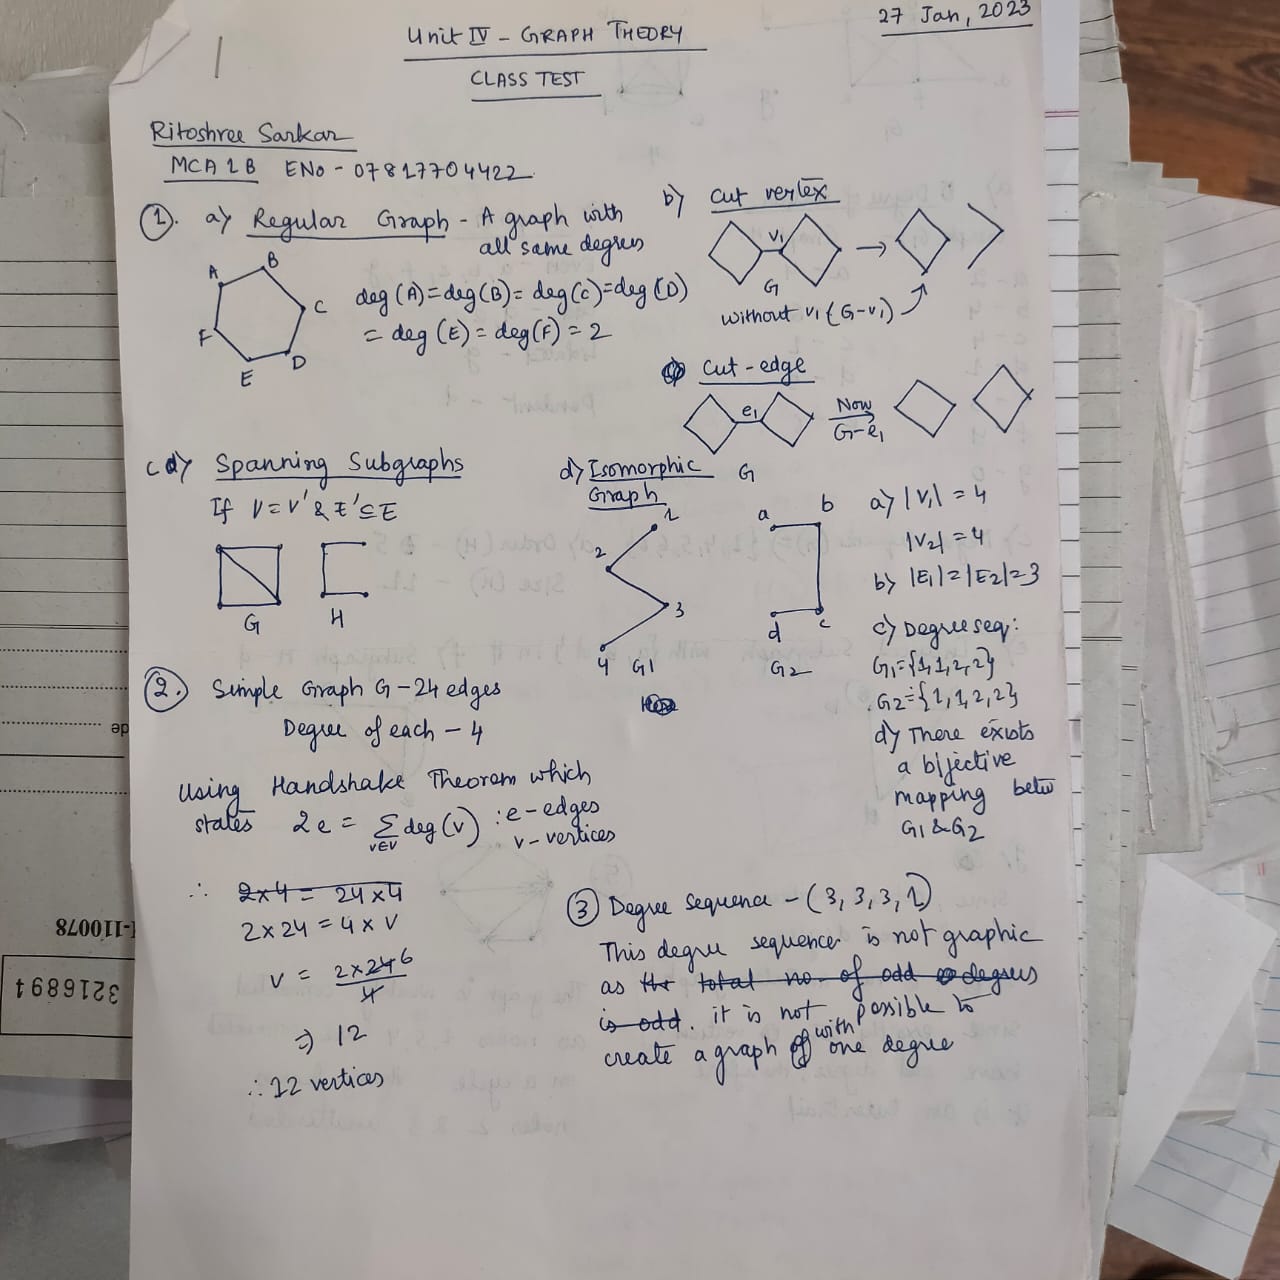 27 Jan, 2023
Unit IV - GRAPH THEORY
CLASS TEST
Ritoshree Sarkar
MCA 1B ENo - 07817704422
1. a) Regular Graph - A graph with
all same degrees
A B C D E F
deg (A) = deg(B) = deg(C) = deg (D)
= deg (E) = deg(F) = 2
b) Cut vertex
v1
G
without v1 (G-v1)
Cut - edge
e1
Now
G-e1
G
c) Spanning Subgraphs
If V = V' & E' ⊆ E
G H
d) Isomorphic
Graph
1
2
3
4 G1
a b
d c
G2
a) |V1| = 4
|V2| = 4
b) |E1| = |E2| = 3
c) Degree seq:
G1 = {1, 1, 2, 2}
G2 = {1, 1, 2, 2}
d) There exists
a bijective
mapping betw
G1 & G2
2. Simple Graph G - 24 edges
Degree of each - 4
Using Handshake Theorem which
states 2e = Σ deg (v) : e - edges
v∈V v - vertices
∴ 2x4 = 24x4
2 x 24 = 4 x V
V = 2 x 24 6
4
⇒ 12
∴ 12 vertices
3 Degree sequence - (3, 3, 3, 1)
This degree sequence is not graphic
as the total no. of odd degrees
is odd. it is not possible to
create a graph with one degree
I-110078
3216894